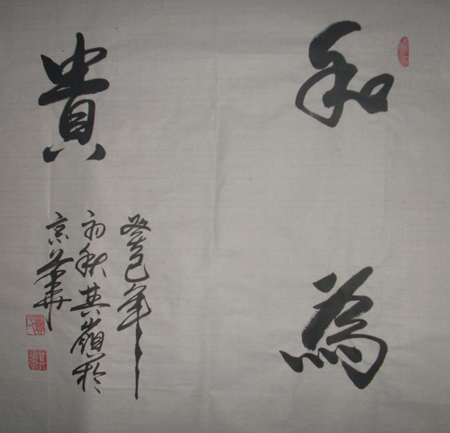 和為
貴
癸巳年
初秋其嶺於
京華